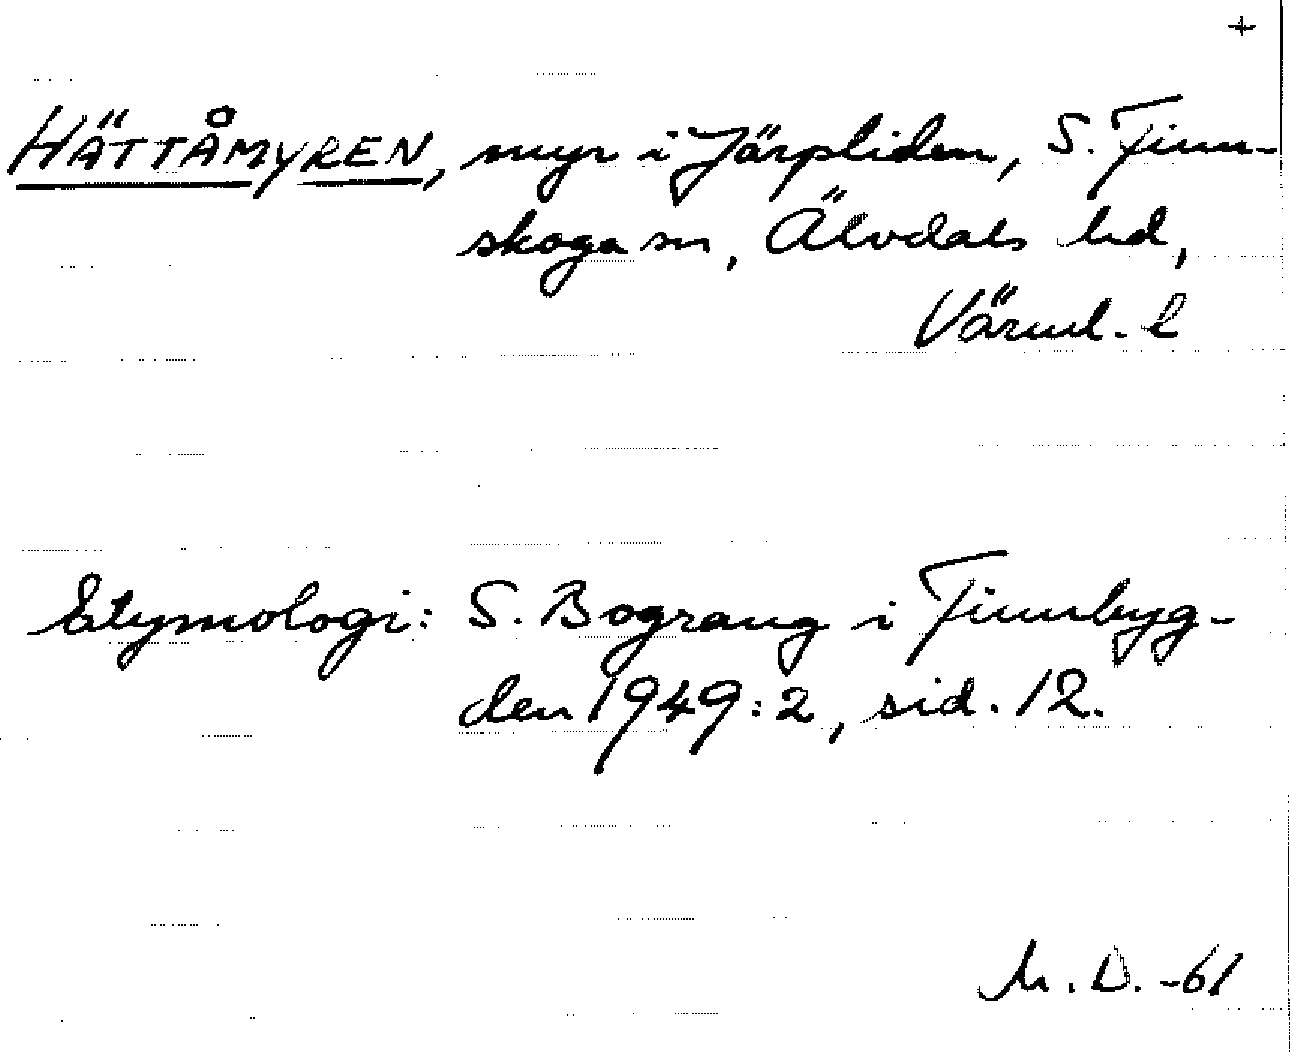 +
HÄTTÅMYREN, myr i Järpliden, S. Finn-
skoga sn, Älvdals hd,
Värml. l
Etymologi: S. Bograng i Finnbyg-
den 1949:2, sid. 12.
M. D. -61